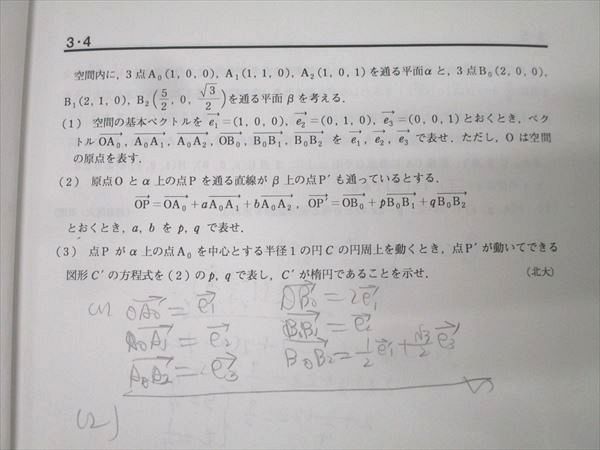 3・4
空間内に，3点A₀(1，0，0)，A₁(1，1，0)，A₂(1，0，1)を通る平面αと，3点B₀(2，0，0)，
B₁(2，1，0)，B₂(5/2，0，√3/2)を通る平面βを考える．
(1) 空間の基本ベクトルを e₁→=(1，0，0)，e₂→=(0，1，0)，e₃→=(0，0，1)とおくとき，ベク
トルOA₀→，A₀A₁→，A₀A₂→，OB₀→，B₀B₁→，B₀B₂→ を e₁→，e₂→，e₃→ で表せ．ただし，Oは空間
の原点を表す．
(2) 原点Oとα上の点Pを通る直線がβ上の点P′も通っているとする．
OP→=OA₀→+aA₀A₁→+bA₀A₂→，OP′→=OB₀→+pB₀B₁→+qB₀B₂→
とおくとき，a，bをp，qで表せ．
(3) 点Pがα上の点A₀を中心とする半径1の円Cの円周上を動くとき，点P′が動いてできる
図形C′の方程式を(2)のp，qで表し，C′が楕円であることを示せ．
(北大)
(1) OA₀→=e₁→ OB₀→=2e₁→
A₀A₁→=e₂→ B₀B₁→=e₂→
A₀A₂→=e₃→ B₀B₂→=1/2e₁→+√3/2e₃→
(2)